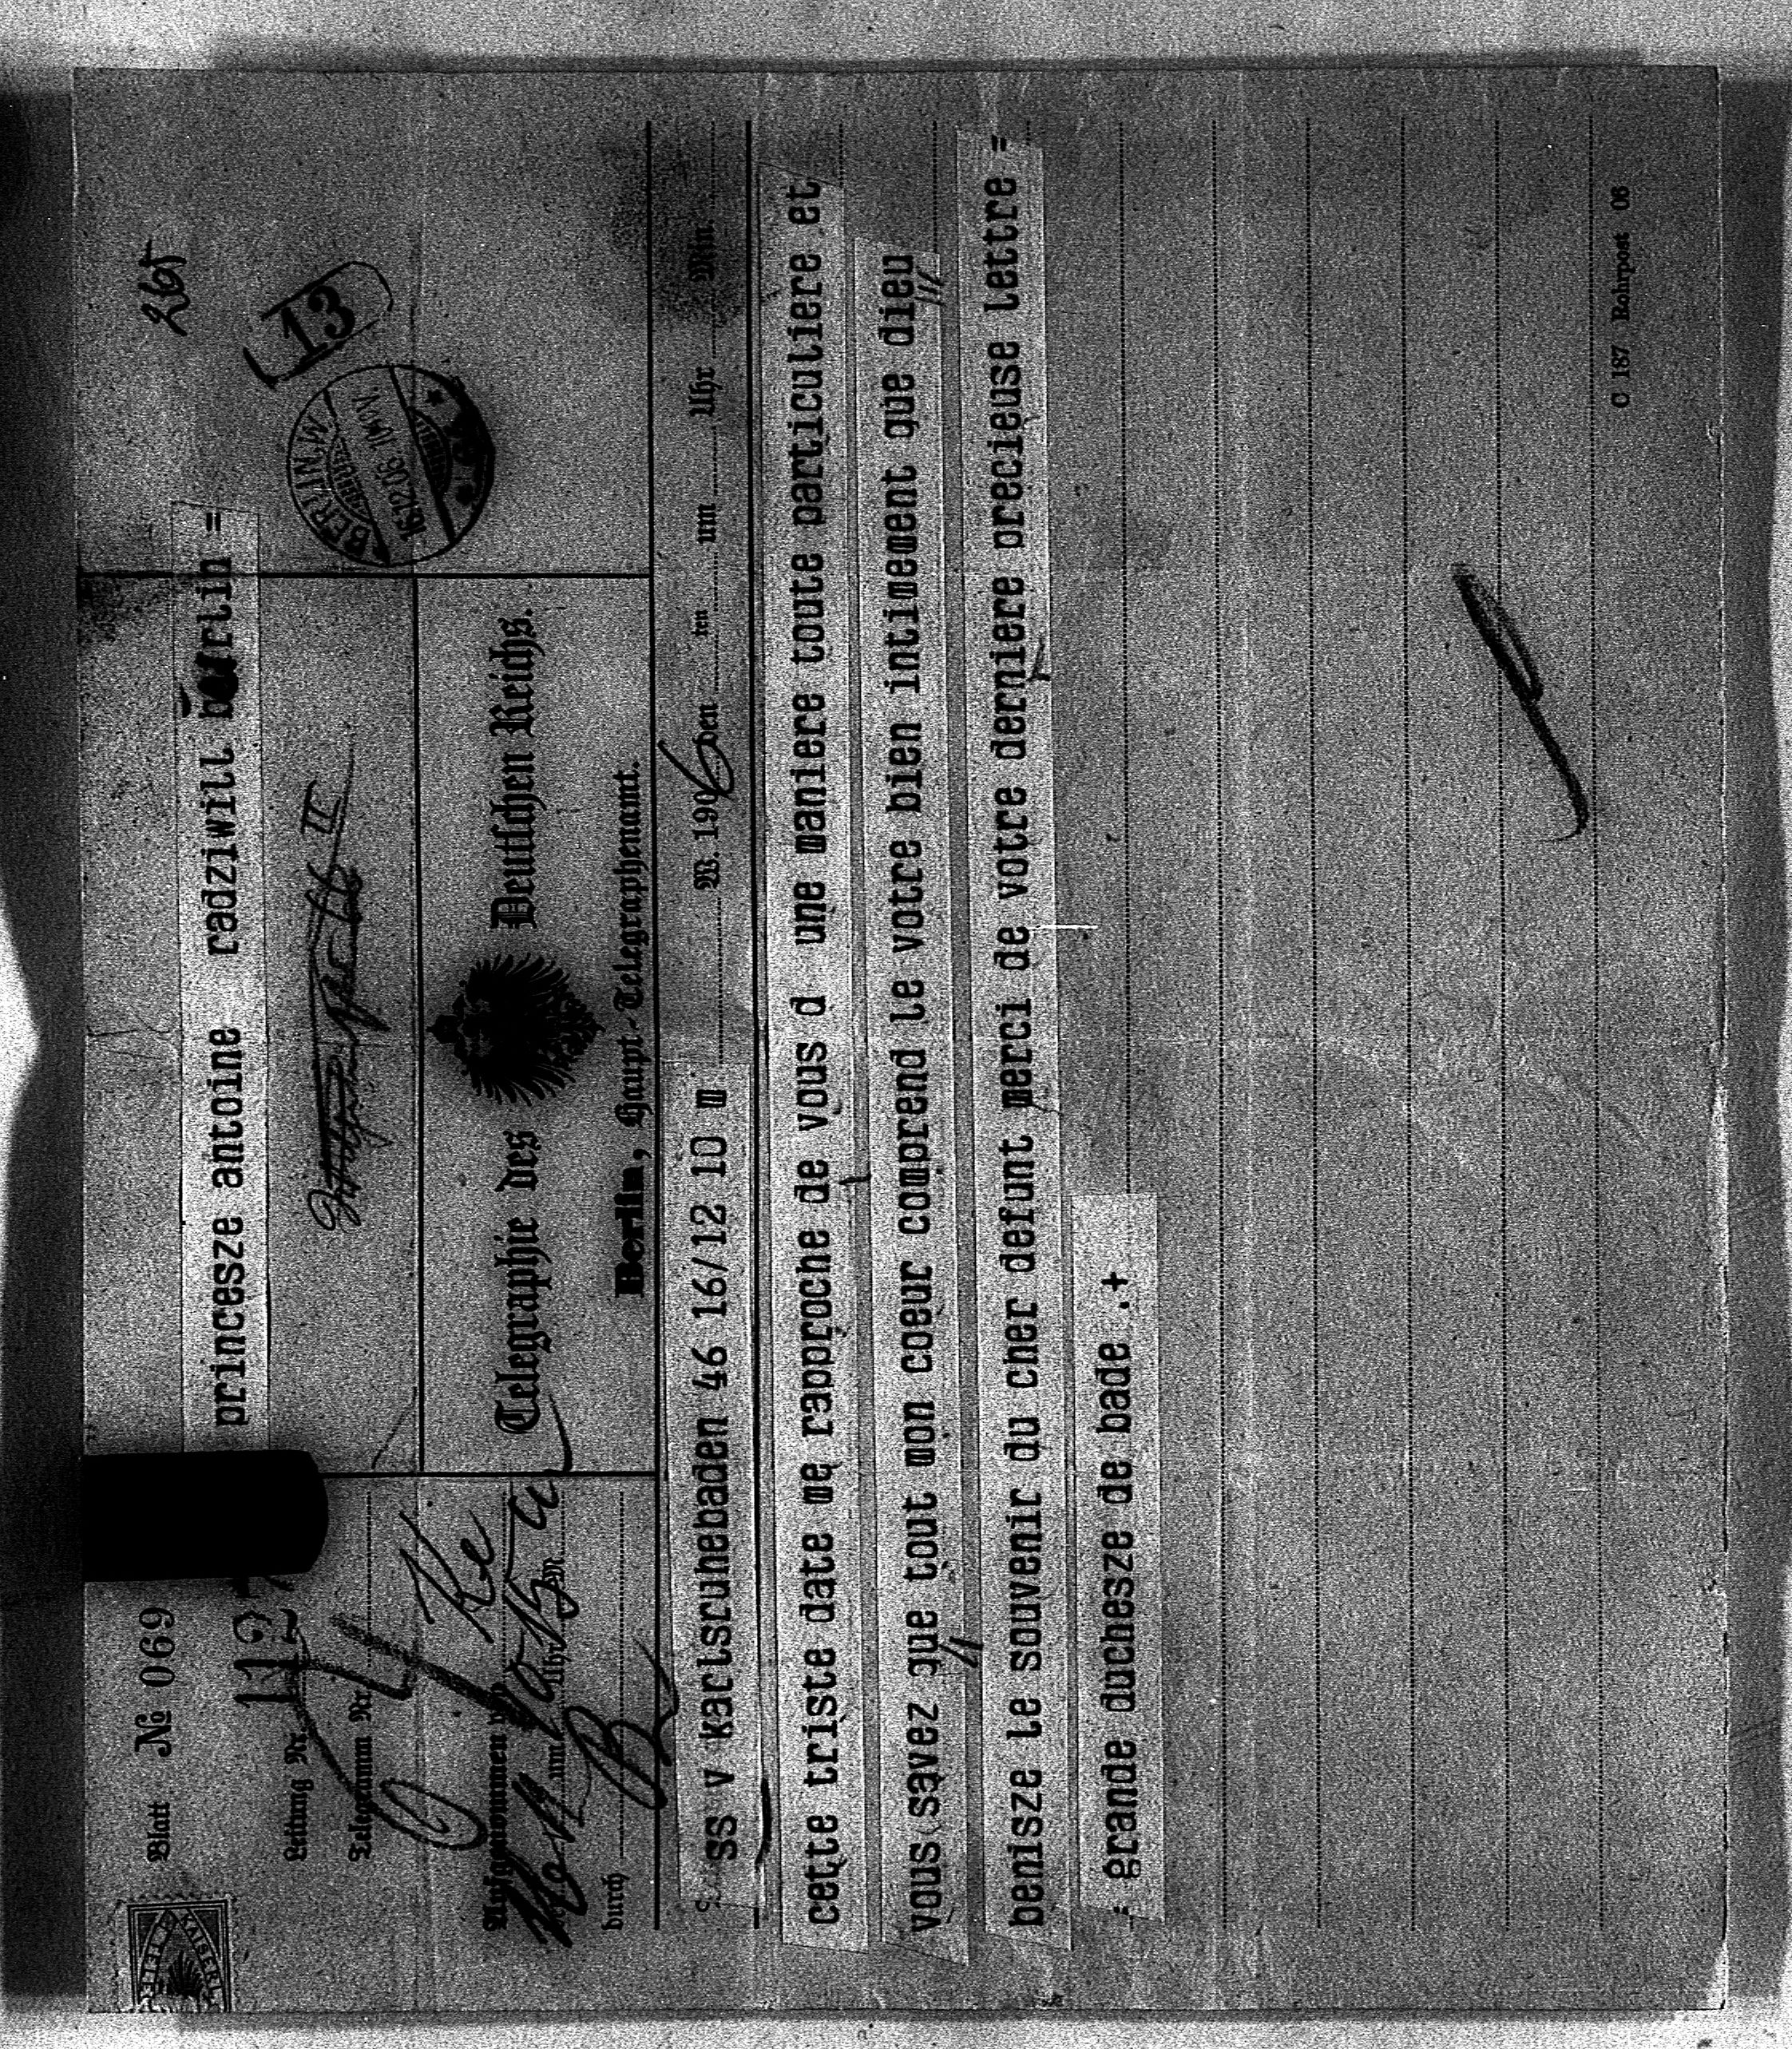 265
Blatt № 069
princesze antoine radziwill berlin =
13
BERLIN.W.
16.12.06. 10
Leitung Nr.
Telegramm Nr.
Telegraphie des Deutschen Reichs.
Berlin, Haupt-Telegraphenamt.
Aufgenommen von
um Uhr M.
durch
ss v karlsruhebaden 46 16/12 10 m W. 1906 den ten um Uhr Min.
cette triste date me rapproche de vous d une maniere toute particuliere et
vous savez que tout mon coeur comprend le votre bien intimement que dieu
benisze le souvenir du cher defunt merci de votre derniere precieuse lettre =
= grande duchesze de bade .+
C 187 Rohrpost 06